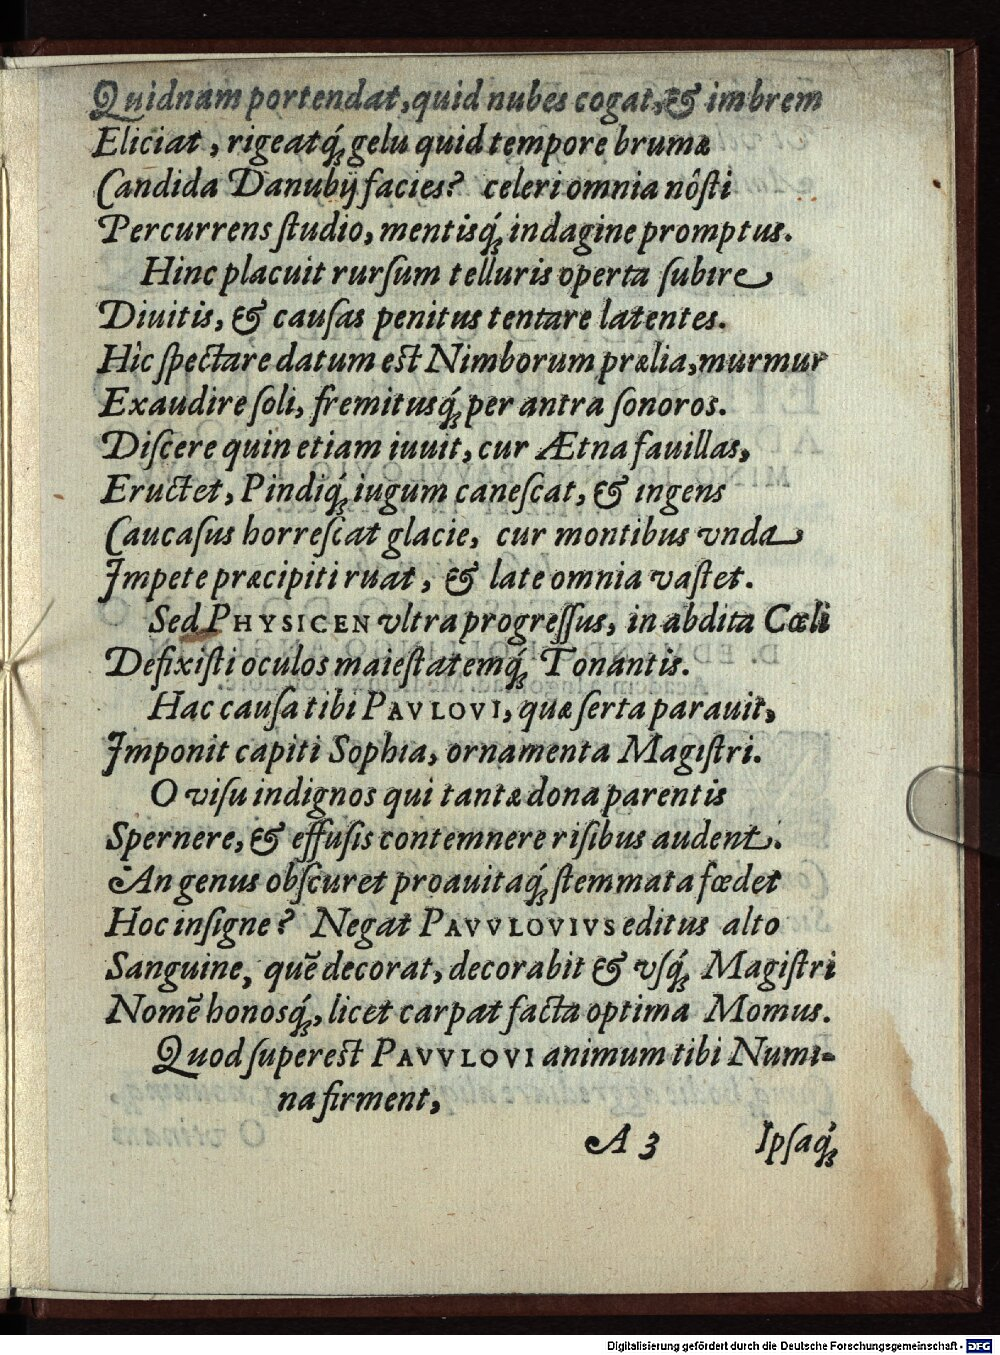 Quidnam portendat, quid nubes cogat, & imbrem
Eliciat, rigeatq́; gelu quid tempore brumæ
Candida Danubij facies? celeri omnia nôſti
Percurrens ſtudio, mentisq́; indagine promptus.
Hinc placuit rurſum telluris operta ſubire
Diuitis, & cauſas penitus tentare latentes.
Hìc ſpectare datum est Nimborum prælia, murmur
Exaudire ſoli, fremitusq́; per antra ſonoros.
Diſcere quin etiam iuuit, cur Ætna fauillas,
Eructet, Pindiq́; iugum caneſcat, & ingens
Caucaſus horreſcat glacie, cur montibus vnda
Impete præcipiti ruat, & late omnia vaſtet.
Sed PHYSICEN vltra progreſſus, in abdita Cœli
Defixiſti oculos maieſtatemq́; Tonantis.
Hac cauſa tibi PAVLOVI, quæ ſerta parauit,
Imponit capiti Sophia, ornamenta Magiſtri.
O viſu indignos qui tantæ dona parentis
Spernere, & effuſis contemnere riſibus audent.
An genus obſcuret proauitaq́; ſtemmata fœdet
Hoc inſigne? Negat PAVVLOVIVS editus alto
Sanguine, quē decorat, decorabit & vſq́; Magiſtri
Nomē honosq́;, licet carpat facta optima Momus.
Quod ſuperest PAVVLOVI animum tibi Numi-
na firment,
A 3 Ipſaq́;
Digitalisierung gefördert durch die Deutsche Forschungsgemeinschaft - DFG